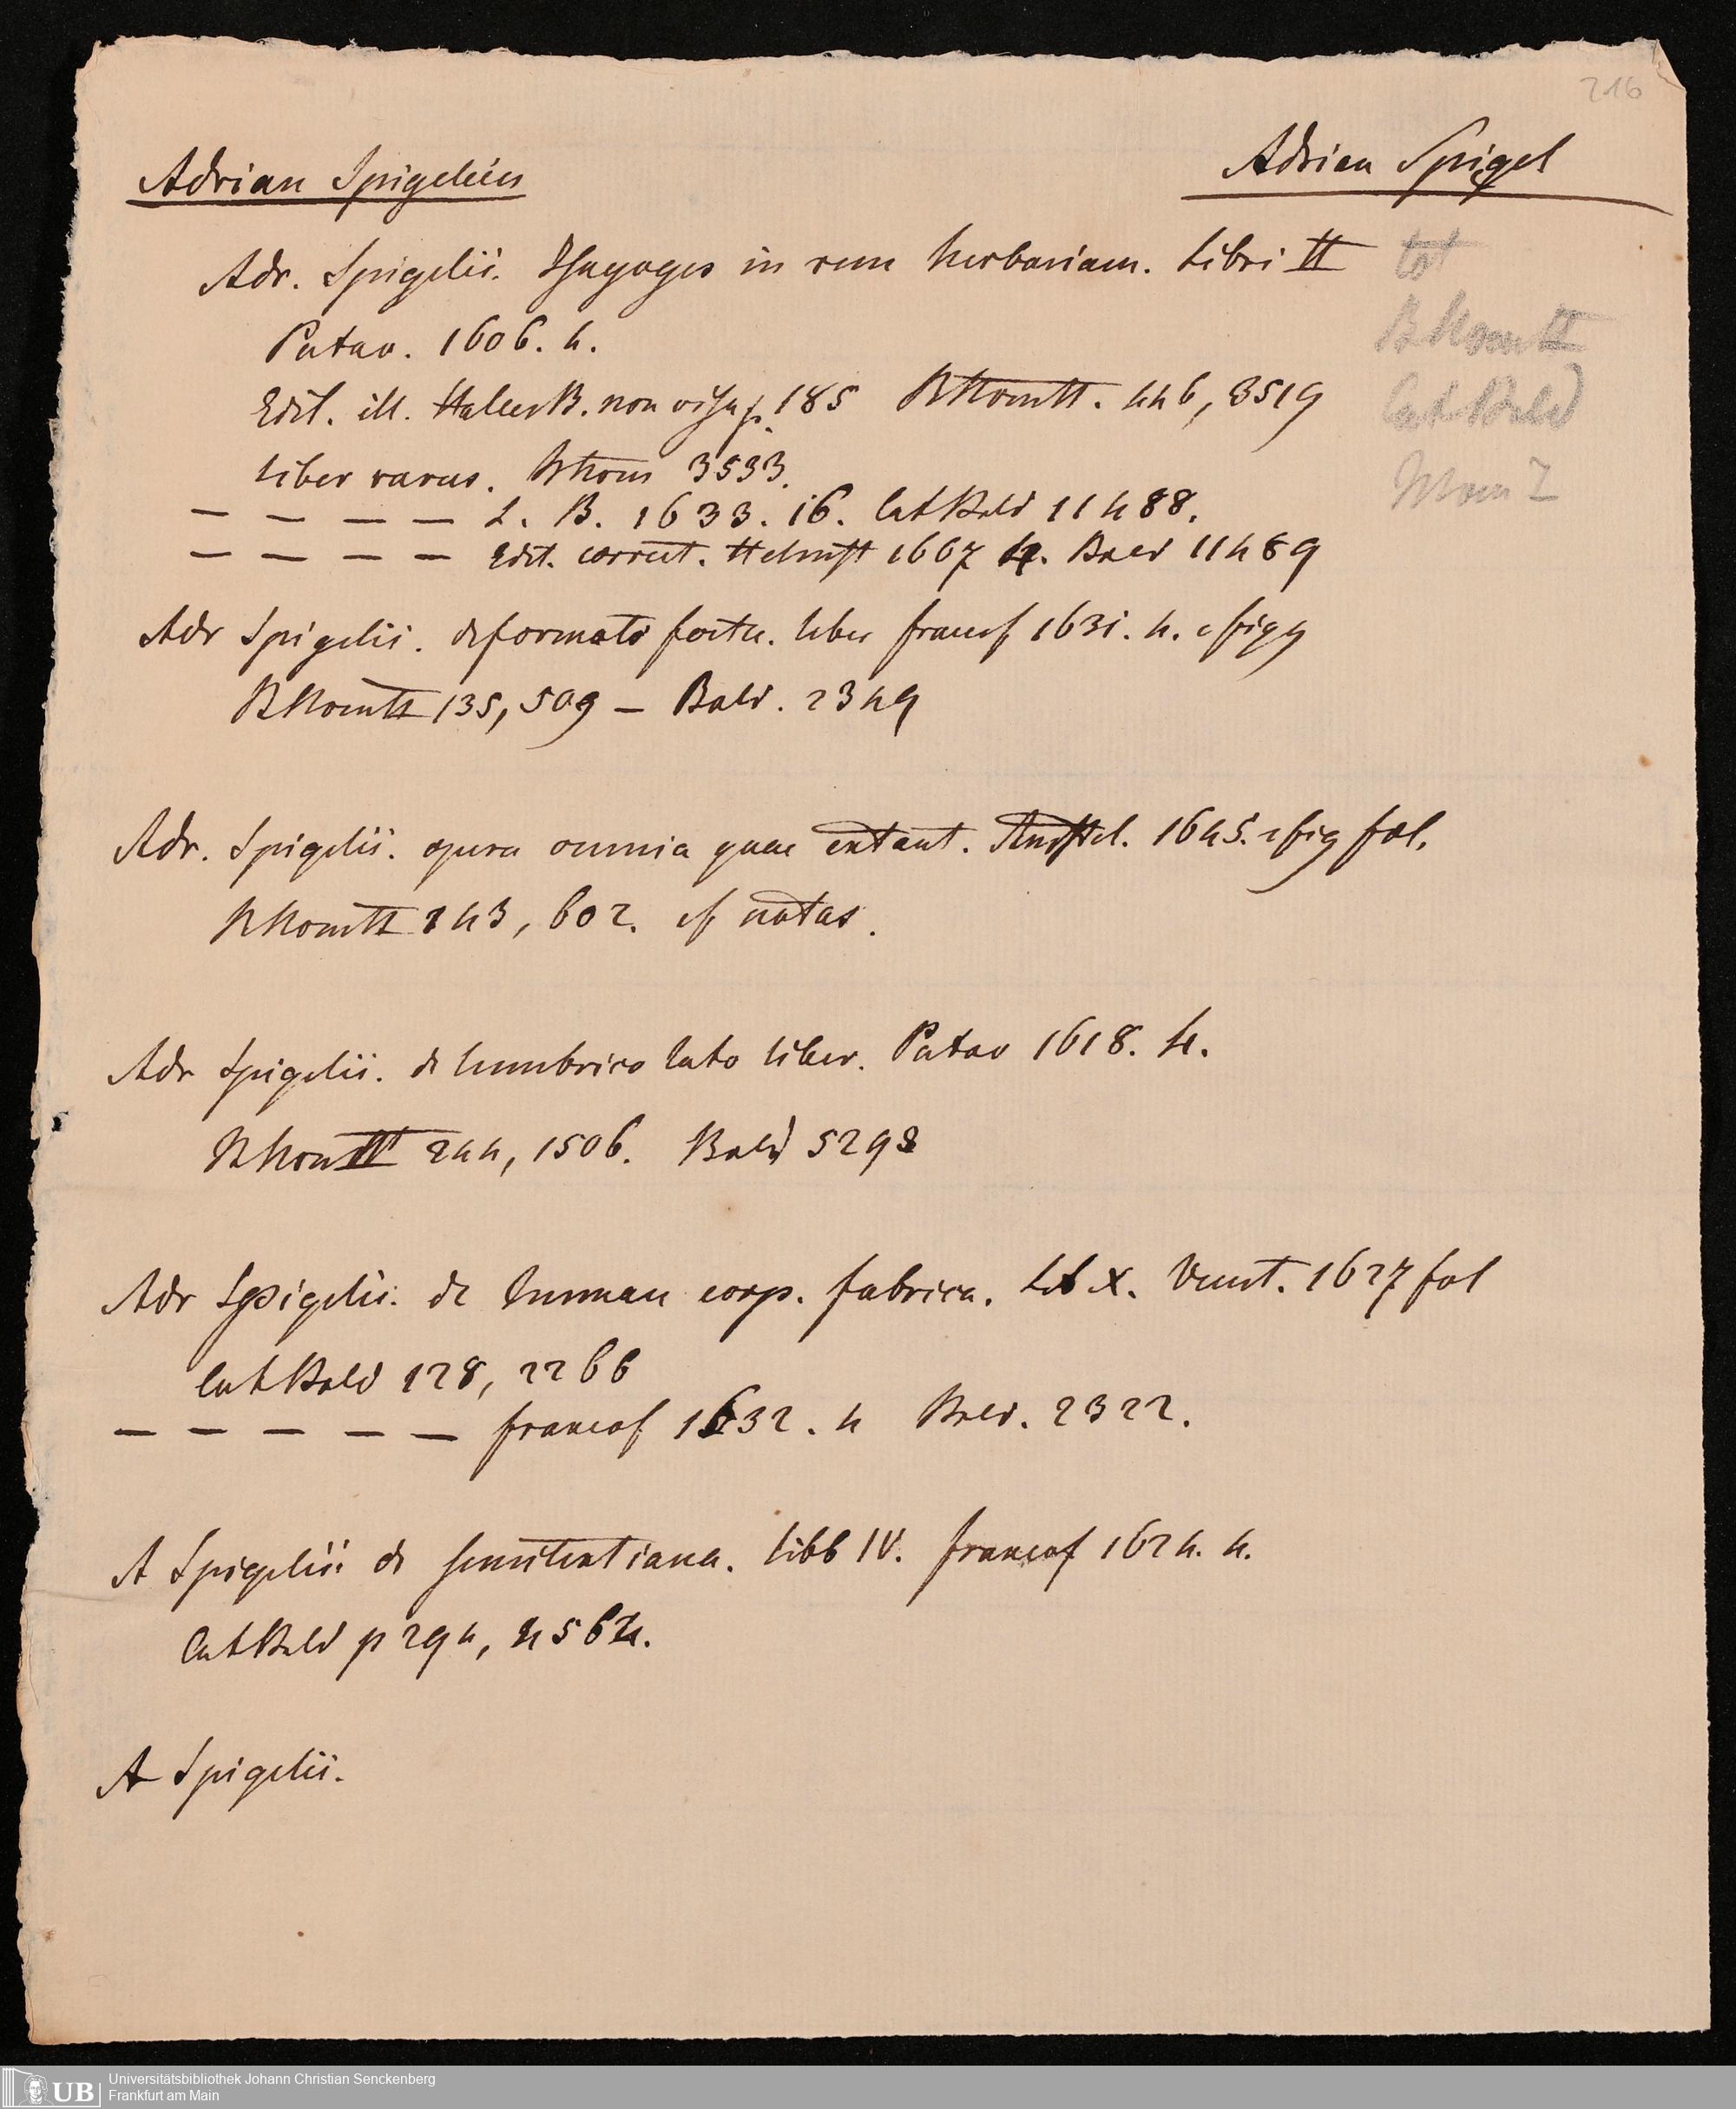 216
Adrian Spigelius
Adrian Spigel
Adr. Spigelii. Isagoges in rem herbariam. Libri II
Patav. 1606. 4.
Edit. ill. Haller B. non visa p. 185 BHomII. 446, 3519
liber rarus. 3533.
tot
BHomII
Cat Bald
— — — — L. B. 1633. 16. Cat Bald 11488.
— — — — Edit. correct. Helmst 1667 4. Bald 11489
Adr Spigelii. de formato foetu. liber francof 1631. 4. c figg
BHomII 135, 509 — Bald. 2349
Adr. Spigelii. opera omnia quae extant. Amstel. 1645. c fig fol.
BHomII 143, 602. cf notas.
Adr Spigelii. de lumbrico lato liber. Patav 1618. 4.
244, 1506. Bald 5298
Adr Spigelii. de human corp. fabrica. Lib X. Venet. 1627 fol
Cat Bald 128, 2266
— — — — — francof 1632. 4 Bald. 2322.
A Spigelii de semitertiana. libb IV. francof 1624. 4.
Cat Bald p 294, 4564.
A Spigelii.
UB
Universitätsbibliothek Johann Christian Senckenberg
Frankfurt am Main